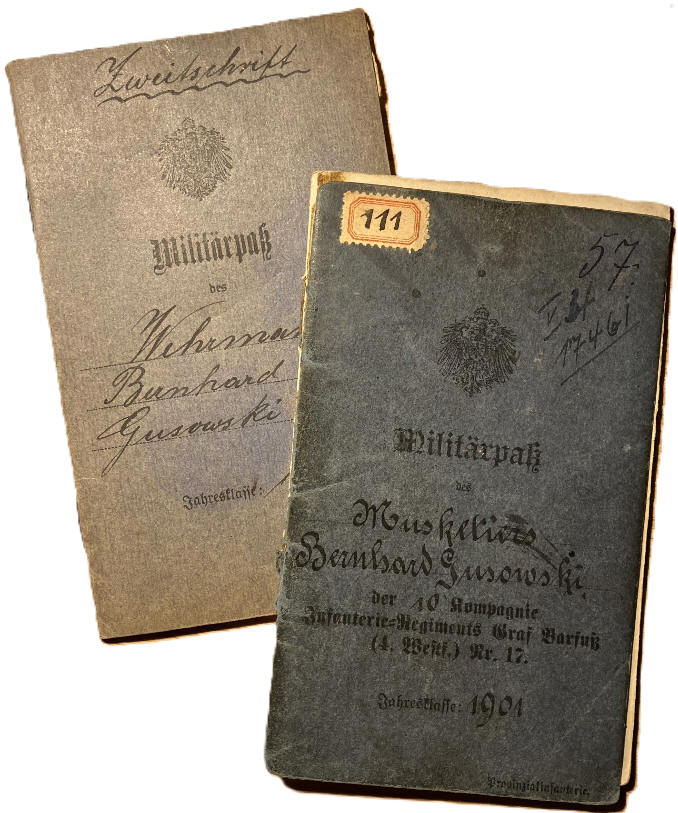 Zweitschrift
Militärpaß
des
Bernhard
Gusowski
Jahresklasse:
111
57
17461
Militärpaß
des
Musketiers
Bernhard Gusowski
der 10 Kompagnie
Infanterie=Regiments Graf Barfuß
(4. Westf.) Nr. 17.
Jahresklasse: 1901
Provinzialinfanterie.